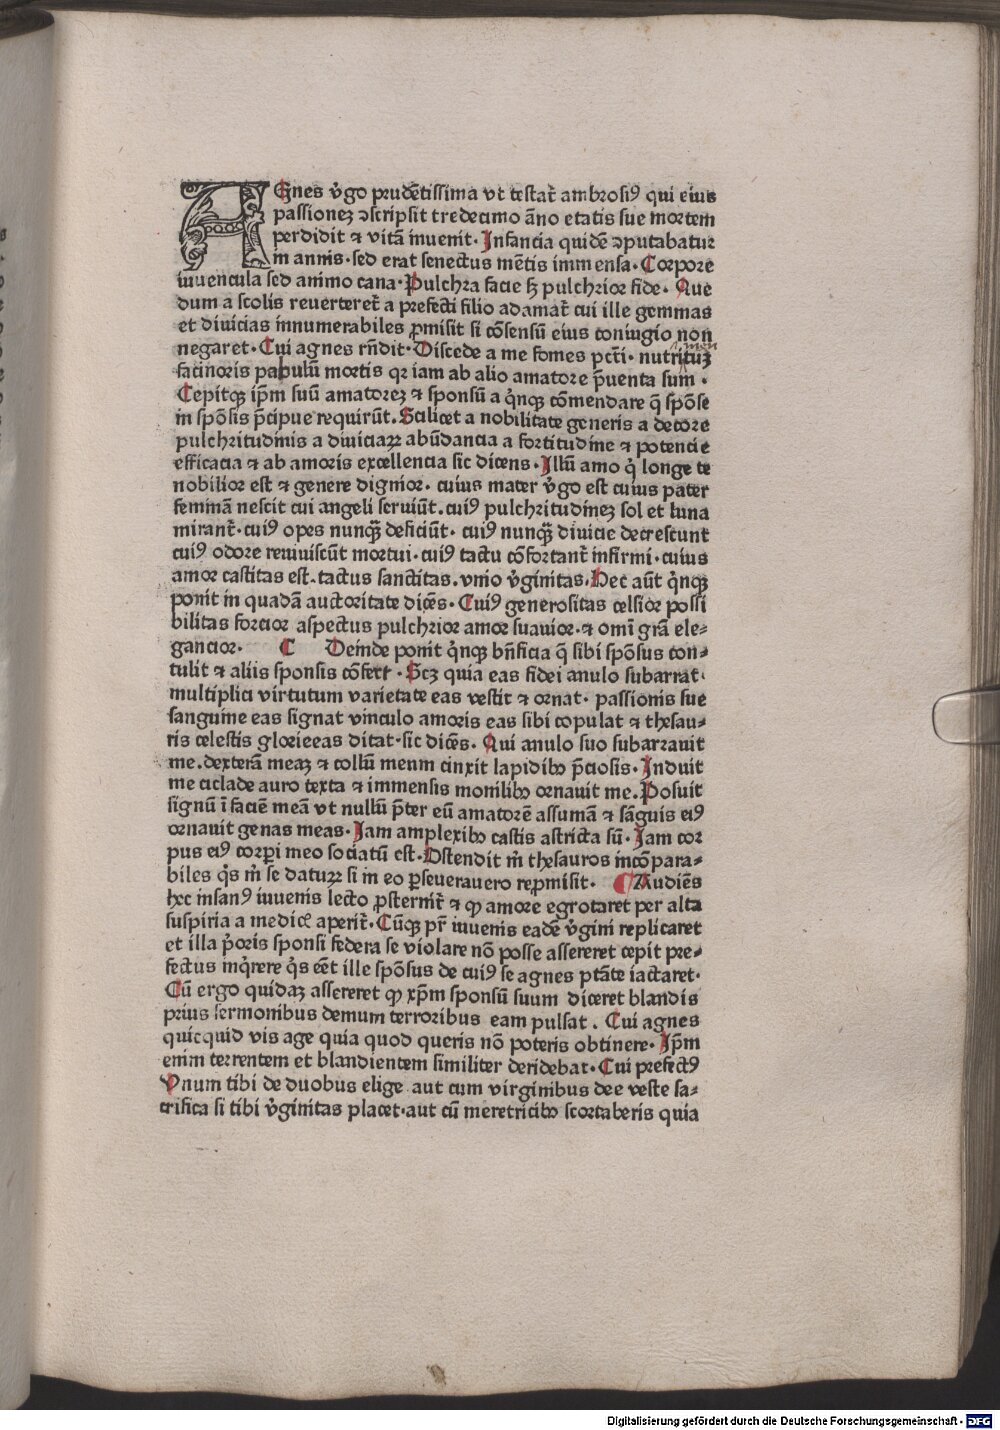 AGnes v̓go prudētissima vt testat̄ ambrosiꝰ qui eius
passioneꝫ ꝯscripsit tredecimo āno etatis sue mortem
perdidit ⁊ vitā inuenit· Infancia quidē ꝯputabatur
in annis·sed erat senectus mētis immensa· Corpore
iuuencula sed animo cana· Pulchra facie sꝫ pulchrior fide· Que
dum a scolis reuerteret̄ a prefecti filio adamat̄ cui ille gemmas
et diuicias innumerabiles ꝓmisit si cōsensū eius coniugio non
negaret· Cui agnes rn̄dit· Discede a me fomes pctī· nutrituꝫ
facinoris pabulū mortis qꝛ iam ab alio amatore p̄uenta sum·
Cepitqꝫ ip̄m suū amatoreꝫ ⁊ sponsū a qͥnqꝫ cōmendare q̄ spōse
in spōsis p̄cipue requirūt. Scilicet a nobilitate generis a decore
pulchritudinis a diuiciaꝝ abūdancia a fortitudine ⁊ potencie
efficacia ⁊ ab amoris excellencia sic dicens· Illū amo qͥ longe te
nobilior est ⁊ genere dignior· cuius mater v̓go est cuius pater
feminā nescit cui angeli seruiūt. cuiꝰ pulchritudineꝫ sol et luna
mirant̄· cuiꝰ opes nunqꝫ̄ deficiūt· cuiꝰ nunqꝫ̄ diuicie decrescunt
cuiꝰ odore reuiuiscūt mortui· cuiꝰ tactu cōfortant̄ infirmi· cuius
amor castitas est. tactus sanctitas. vnio v̓ginitas. Hec aūt qͥnqꝫ
ponit in quadā auctoritate dicēs· Cuiꝰ generositas celsior possi
bilitas forcior aspectus pulchrior amor suauior·⁊ omī grā ele⸗
gancior· C Deinde ponit qͥnqꝫ bn̄ficia q̄ sibi spōsus con⸗
tulit ⁊ aliis sponsis cōfert· Scꝫ quia eas fidei anulo subarrat·
multiplici virtutum varietate eas vestit ⁊ ornat· passionis sue
sanguine eas signat vinculo amoris eas sibi copulat ⁊ thesau⸗
ris celestis glorieeas ditat·sic dicēs. Qui anulo suo subarrauit
me. dexterā meaꝫ ⁊ collū meum cinxit lapidibꝰ p̄ciosis· Induit
me ciclade auro texta ⁊ immensis monilibꝰ ornauit me. Posuit
signū ī faciē meā vt nullū p̄ter eū amatorē assumā ⁊ sāguis eiꝰ
ornauit genas meas· Iam amplexibꝰ castis astricta sū· Iam cor
pus eiꝰ corꝑi meo sociatū est· Ostendit m̄ thesauros incōpara⸗
biles qͦs m̄ se datuꝝ si in eo ꝑseuerauero reꝓmisit· ¶Audiēs
hec insanꝰ iuuenis lecto ꝓsternit̄ ⁊ ꝙ amore egrotaret per alta
suspiria a medicꝭ aperit̄· Cūqꝫ pr̄ iuuenis eadē v̓gini replicaret
et illa p̓oris sponsi federa se violare nō posse assereret cepit pre⸗
fectus inqͥrere qͥs eēt ille spōsus de cuiꝰ se agnes ptāte iactaret·
Cū ergo quidaꝫ assereret ꝙ xp̄m sponsū suum diceret blandis
prius sermonibus demum terroribus eam pulsat. Cui agnes
quicquid vis age quia quod queris nō poteris obtinere· Ip̄m
enim terrentem et blandientem similiter deridebat· Cui prefectꝰ
Vnum tibi de duobus elige aut cum virginibus dee veste sa⸗
crifica si tibi v̓ginitas placet·aut cū meretricibꝰ scortaberis quia
Digitalisierung gefördert durch die Deutsche Forschungsgemeinschaft - DFG